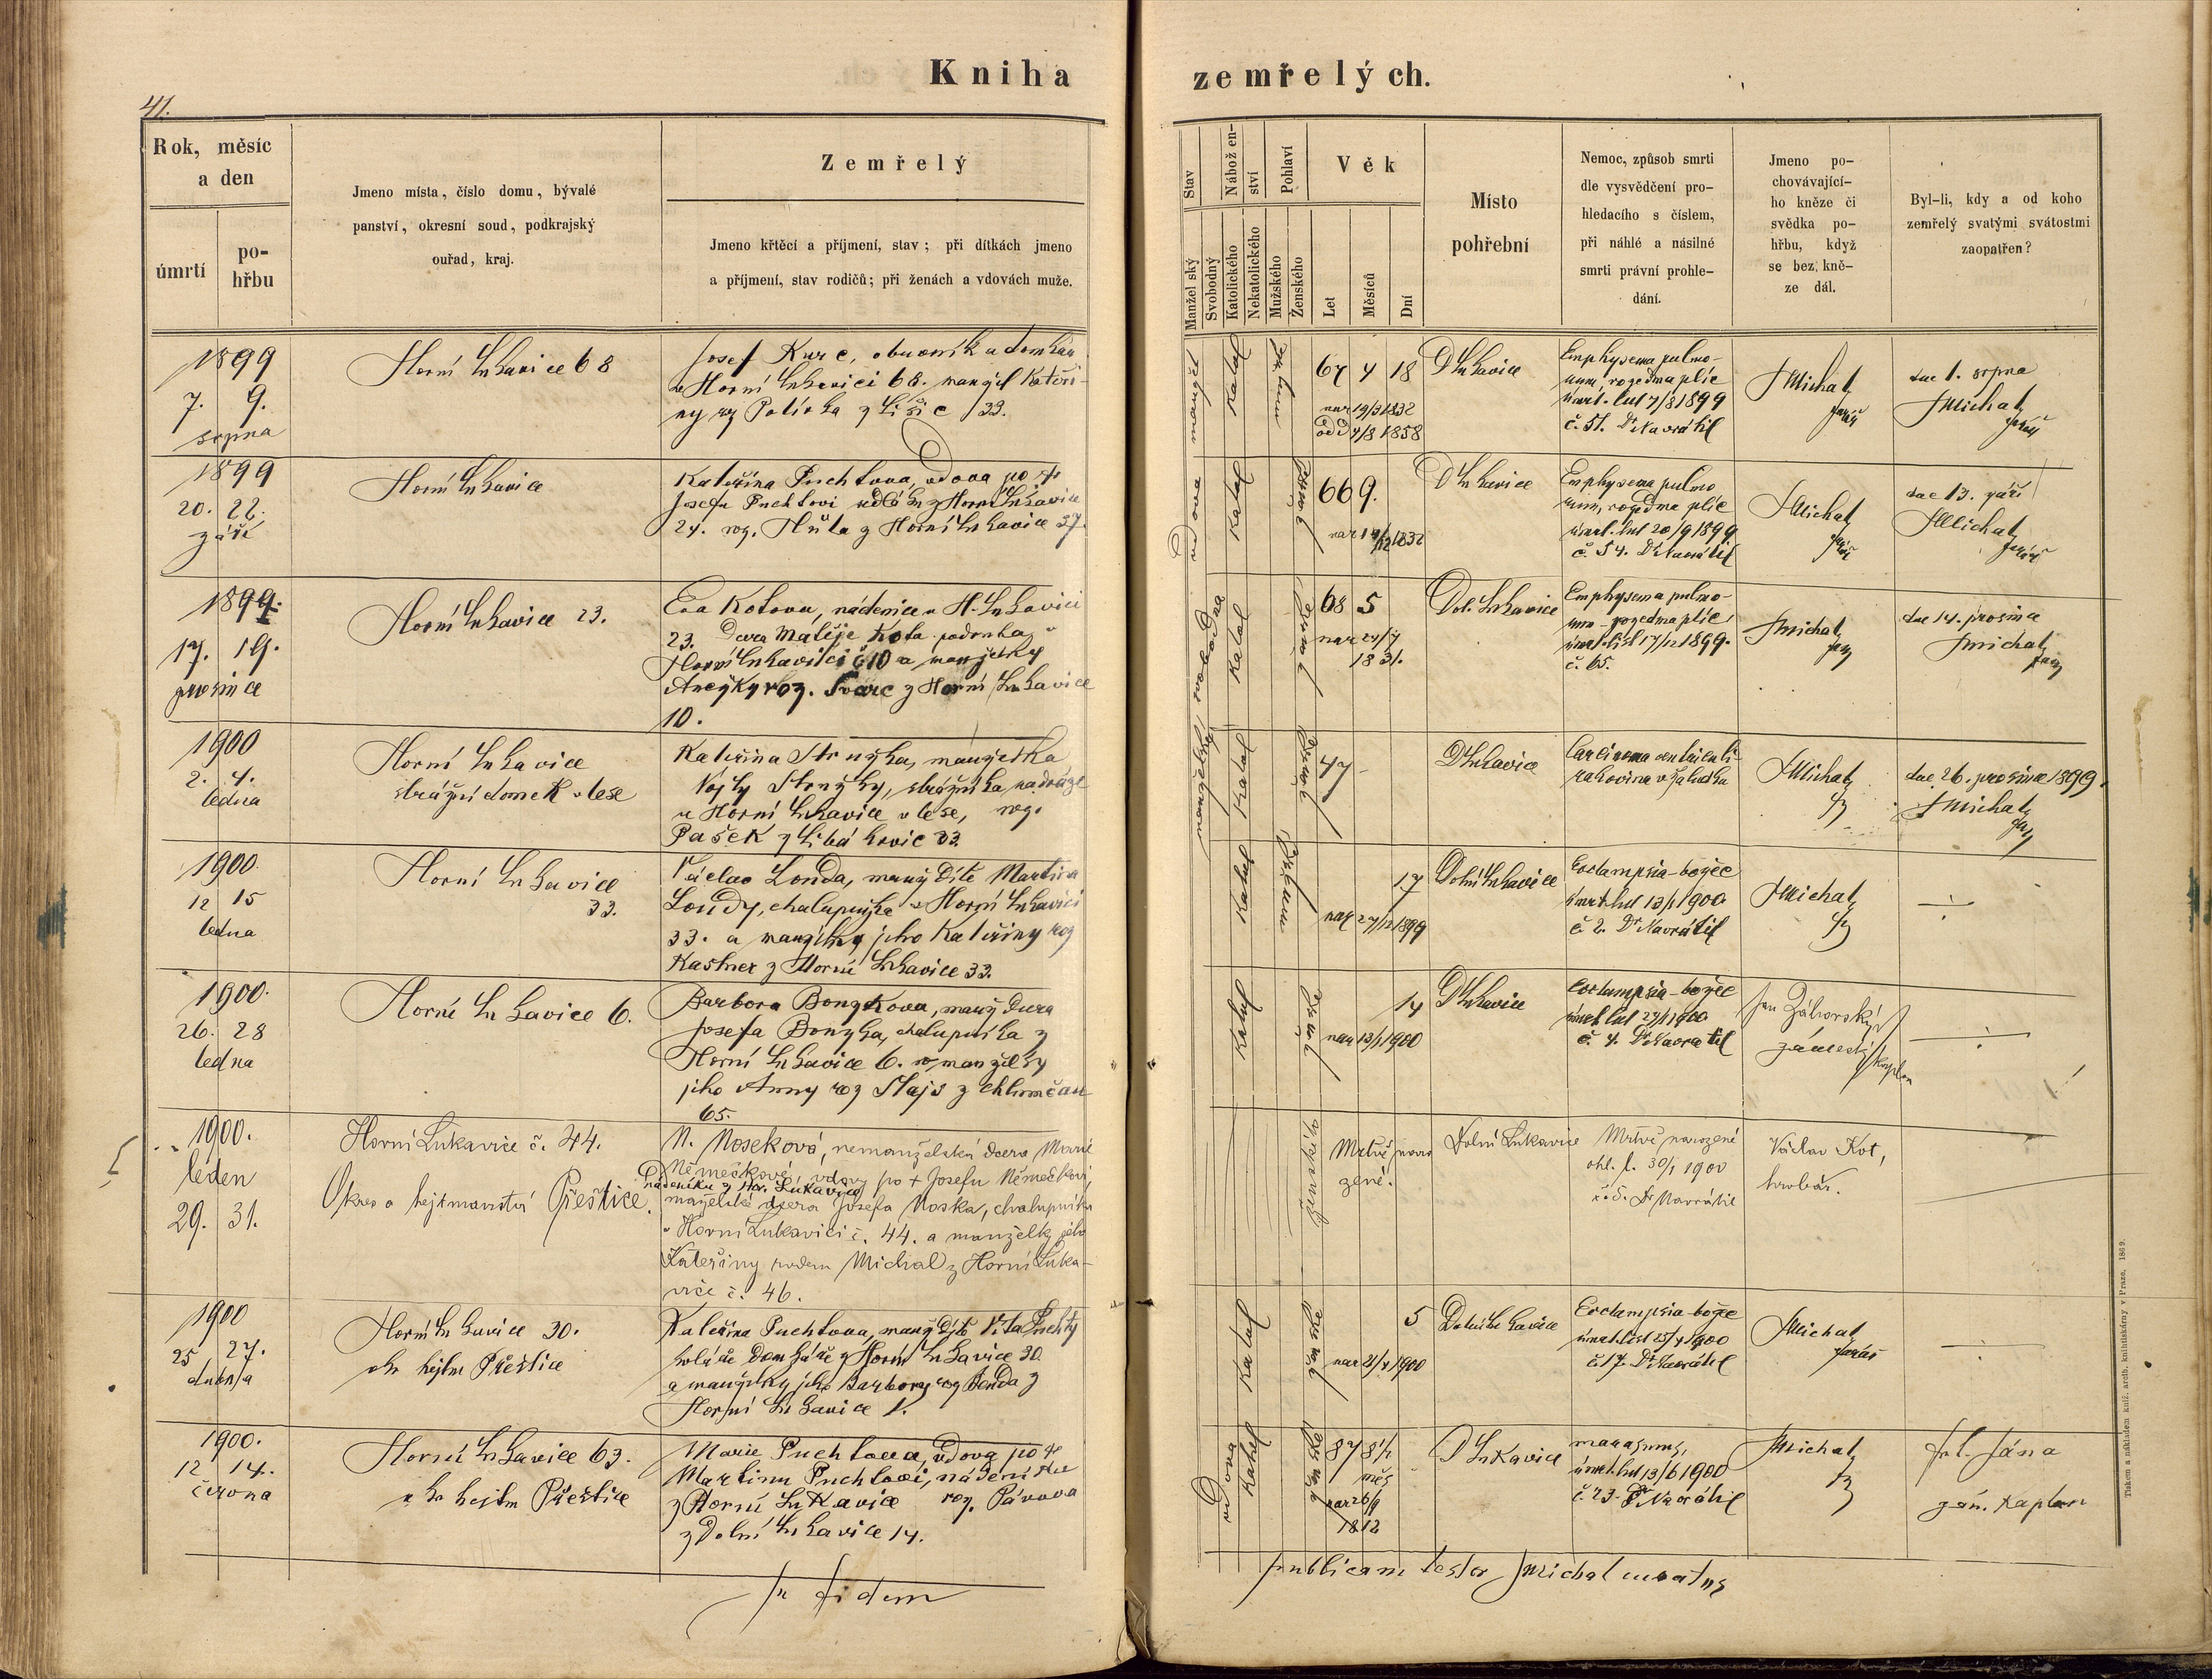 Kniha zemřelých.
41.
Rok, měsíc
a den
úmrtí
po-
hřbu
Jmeno místa, číslo domu, bývalé
panství, okresní soud, podkrajský
ouřad, kraj.
Zemřelý
Jmeno křtěcí a příjmení, stav; při dítkách jmeno
a příjmení, stav rodičů; při ženách a vdovách muže.
Stav
Manželský
Svobodný
Náboženství
Katolického
Nekatolického
Pohlaví
Mužského
Ženského
Věk
Let
Měsíců
Dní
Místo
pohřební
Nemoc, způsob smrti
dle vysvědčení pro-
hledacího s číslem,
při náhlé a násilné
smrti právní prohle-
dání.
Jmeno po-
chovávající-
ho kněze či
svědka po-
hřbu, když
se bez kně-
ze dál.
Byl-li, kdy a od koho
zemřelý svatými svátostmi
zaopatřen?
1899
7. 9.
srpna
Horní Lukavice 68
Josef Kurc, obuvník a domkář
v Horní Lukavici 68. manžel Kateři-
ny roz Polívka z Lišic 33.
manžel
katol
67 4 18
nar 19/3 1832
odd 4/8 1858
D Lukavice
Emphysema pulmo-
num, rozedma plic
úmrt. list 7/8 1899
č. 51. Dr Navrátil
J Michal
farář
dne 1. srpna
J Michal
farář
1899
20. 22.
září
Horní Lukavice
Kateřina Puchtova, vdova po †
Josefu Puchtovi z Horní Lukavice
24. roz. Hůla z Horní Lukavice 37.
vdova
katol
ženské
66 9.
nar 14/12 1832
D Lukavice
Emphysema pulmo
num, rozedma plic
úmrt. list 20/9 1899
č. 54. Dr Navrátil
J Michal
farář
dne 13. září
J Michal
farář
1899.
17. 19.
prosince
Horní Lukavice 23.
Eva Kotova, nádenice v H. Lukavici
23. Dcera Matěje Kota podruha v
Horní Lukavici č 10 a manželky
Anežky roz. Švarc z Horní Lukavice
10.
svobodna
katol
ženské
68 5
nar 24/7
1831.
Dol. Lukavice
Emphysema pulmo-
num - rozedma plic,
úmrt. list 17/12 1899.
č. 65.
J Michal
far
dne 14. prosince
J Michal
far
1900
2. 4.
ledna
Horní Lukavice
strážní domek v lese
Kateřina Stružka, manželka
Vojty Stružky, strážníka na dráze
u Horní Lukavice v lese, roz.
Pašek z Libákovic 33.
manželská
katol
ženské
47 -
D Lukavice
Carcinoma ventriculi-
rakovina v žaludku
J Michal
fz
dne 26. prosince 1899.
J Michal
far
1900.
12 15
ledna
Horní Lukavice
33.
Václav Londa, manž dítě Martina
Londy, chalupníka v Horní Lukavici
33. a manželky jeho Kateřiny roz
Kastner z Horní Lukavice 33.
katol
17
nar 27/12 1899
Dolní Lukavice
Eclampsia - božec
úmrt. list 13/1 1900
č 2. Dr Navrátil
J Michal
fz
÷
1900.
26. 28
ledna
Horní Lukavice 6.
Barbora Bonzkova, manž dcera
Josefa Bonzka, chalupníka z
Horní Lukavice 6. a manželky
jeho Anny roz Slajs z Chlumčan
65.
katol
ženské
14
nar 13/1 1900
D Lukavice
Eclampsia - božec
úmrt. list 27/1 1900
č. 4. Dr Navrátil
Jan Záhorský
zámecký kaplan
÷
1900.
leden
29. 31.
Horní Lukavice č. 44.
Okres a hejtmanství Přeštice.
N. Noseková, nemanželská dcera Marie
Němečkové, vdovy po † Josefu Němečkovi,
nádeníku z Hor. Lukavice
manželské dcera Josefa Noska, chalupníka
v Horní Lukavici č. 44. a manželky jeho
Kateřiny rodem Michal z Horní Luka-
vice č. 46.
ženské
Mrtvě naro
zené.
Dolní Lukavice
Mrtvě narozené
ohl. l. 30/1 1900
č. 5. Dr Navrátil
Václav Kot,
hrobař.
1900
25 27.
dubna
Horní Lukavice 30.
okr hejtm Přeštice
Kateřina Puchtova, manž dítě Víta Puchty
koláře domkáře z Horní Lukavice 30
a manželky jeho Barbory roz Benda z
Horní Lukavice 1.
katol
ženské
5
nar 21/4 1900
Dolní Lukavice
Eclampsia božec
úmrt. list 25/4 1900
č 17. Dr Navrátil
J Michal
farář
÷
1900.
12 14.
června
Horní Lukavice 63.
okr hejtm Přeštice
Marie Puchtova, vdova po †
Martinu Puchtovi, nádeníku
z Horní Lukavice roz. Pávova
z Dolní Lukavice 14.
vdova
katol
ženské
87 8½
měs
nar 26/9
1812
D Lukavice
marasmus,
úmrt. list 13/6 1900
č. 23. Dr Navrátil
J Michal
fz
Fr. l. Jána
zám. kaplan
In fidem publicam testor J Michal curatus
Tiskem a nákladem kníž. arcib. knihtiskárny v Praze. 1869.